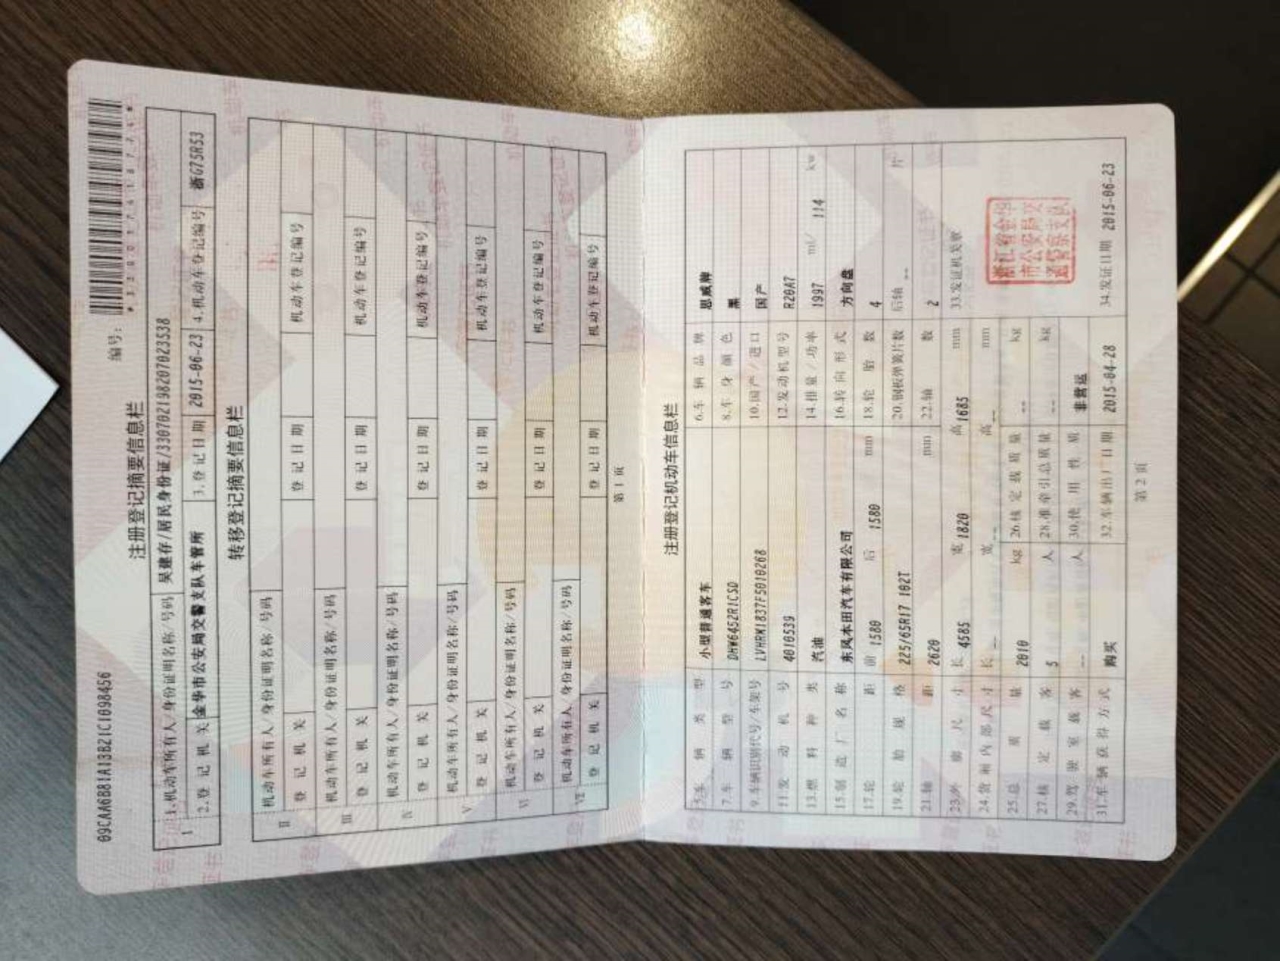 09CAA6B81A13B21C1098456
编号:
注册登记摘要信息栏
I
1.机动车所有人/身份证明名称/号码 吴建存/居民身份证/330702198207023538
2.登记机关 金华市公安局交警支队车管所 3.登记日期 2015-06-23 4.机动车登记编号 浙G75R53
转移登记摘要信息栏
II 机动车所有人/身份证明名称/号码
登记机关 登记日期 机动车登记编号
III 机动车所有人/身份证明名称/号码
登记机关 登记日期 机动车登记编号
IV 机动车所有人/身份证明名称/号码
登记机关 登记日期 机动车登记编号
V 机动车所有人/身份证明名称/号码
登记机关 登记日期 机动车登记编号
VI 机动车所有人/身份证明名称/号码
登记机关 登记日期 机动车登记编号
VII 机动车所有人/身份证明名称/号码
登记机关 登记日期 机动车登记编号
第1页
注册登记机动车信息栏
5.车辆类型 小型普通客车 6.车辆品牌 思威牌
7.车辆型号 DHW6452R1CSD 8.车身颜色 黑
9.车辆识别代号/车架号 LVHRM1837F5010268 10.国产/进口 国产
11.发动机号 4010539 12.发动机型号 R20A7
13.燃料种类 汽油 14.排量/功率 1997 ml/ 114 kw
15.制造厂名称 东风本田汽车有限公司 16.转向形式 方向盘
17.轮距 前 1580 后 1580 mm 18.轮胎数 4
19.轮胎规格 225/65R17 102T 20.钢板弹簧片数 后轴 -- 片
21.轴距 2620 mm 22.轴数 2
23.外廓尺寸 长 4585 宽 1820 高 1685 mm 33.发证机关章
24.货厢内部尺寸 长 -- 宽 -- 高 -- mm
25.总质量 2010 kg 26.核定载质量 -- kg
27.核定载客 5 人 28.准牵引总质量 -- kg
29.驾驶室载客 -- 人 30.使用性质 非营运
31.车辆获得方式 购买 32.车辆出厂日期 2015-04-28 34.发证日期 2015-06-23
浙江省金华
市公安局交
通警察支队
第2页